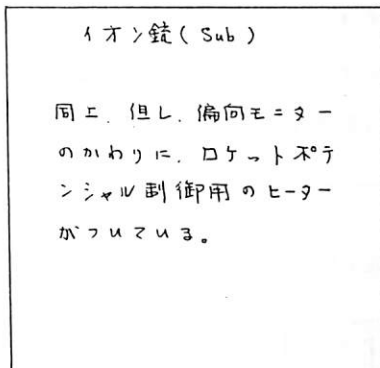 イオン銃(Sub)
同上.但し.偏向モニター
のかわりに.ロケットポテ
ンシャル制御用のヒーター
がついている。